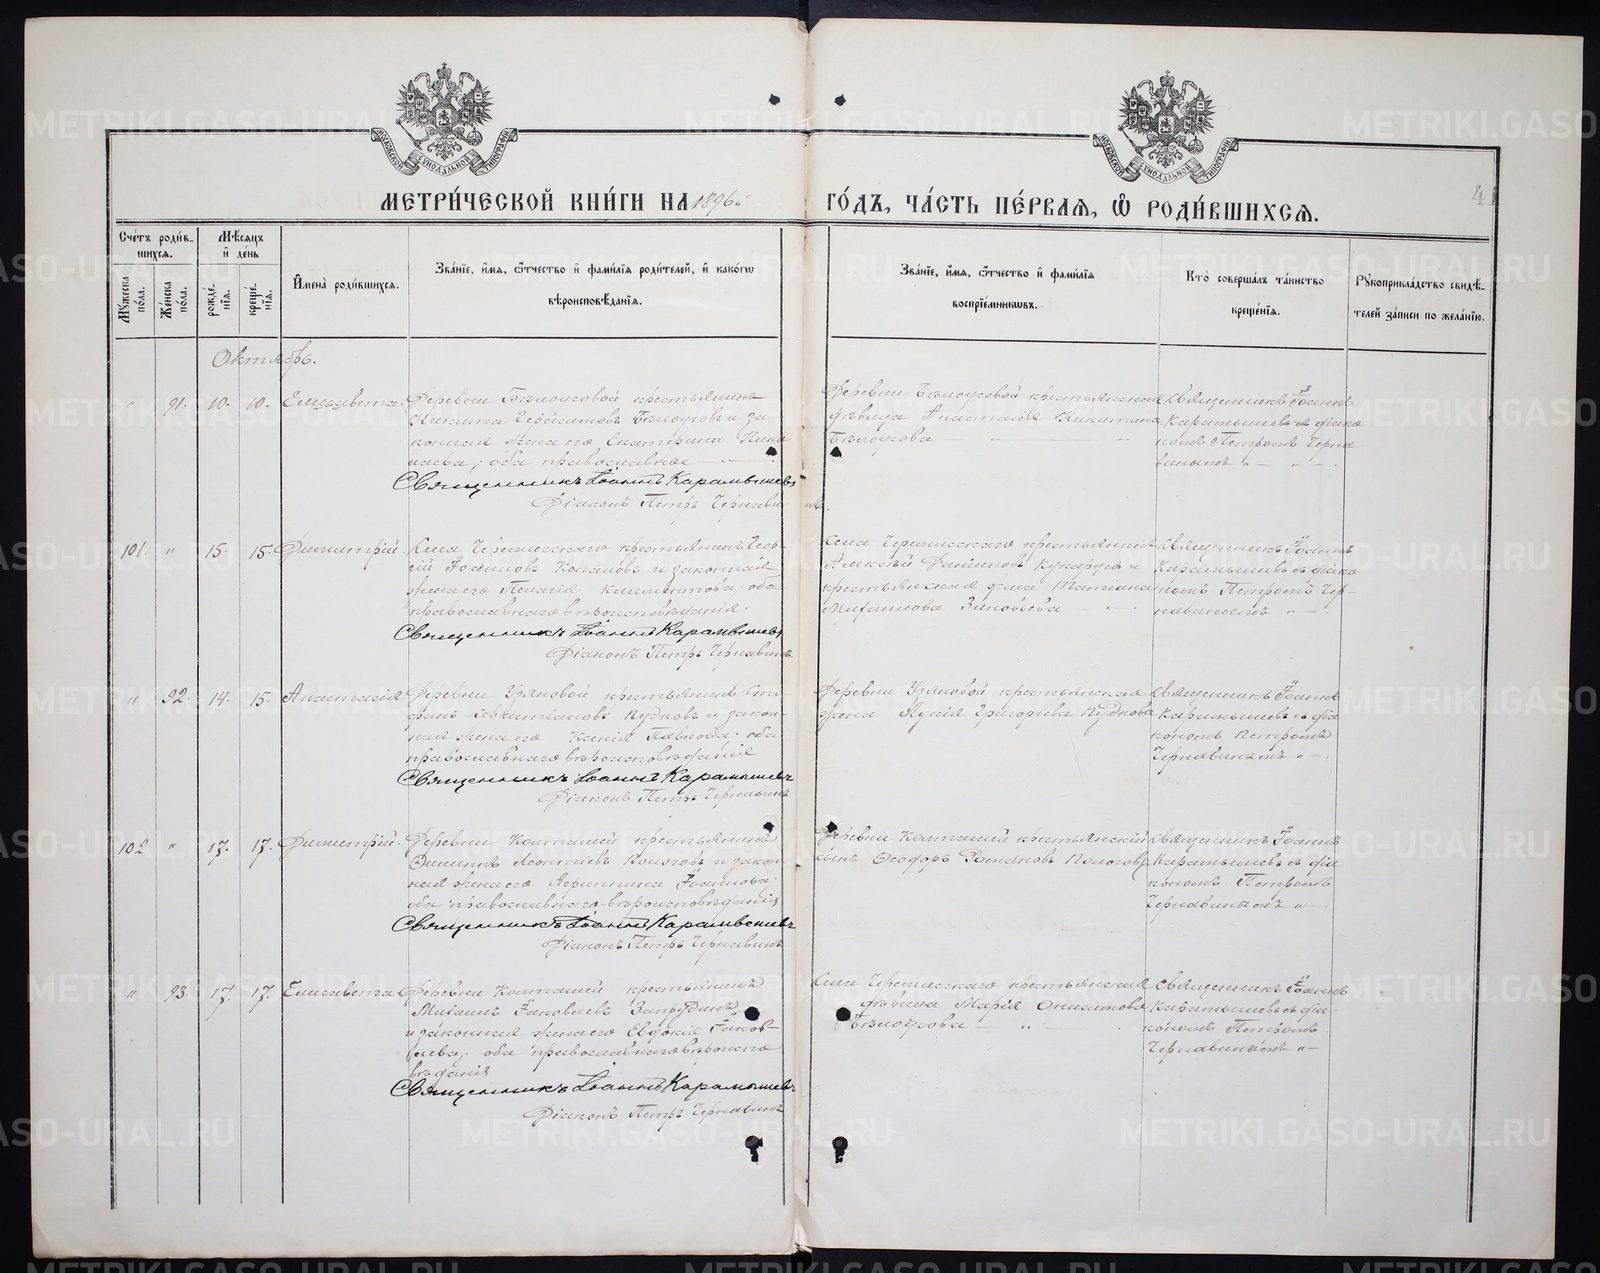 МОСКОВСКОЙ СѴНОДАЛЬНОЙ ТИПОГРАФІИ
МОСКОВСКОЙ СѴНОДАЛЬНОЙ ТИПОГРАФІИ
МЕТРИ́ЧЕСКОЙ КНИ́ГИ НА 1896й
ГО́ДЪ, ЧА́СТЬ ПЕ́РВАЯ, Ѡ РОДИ́ВШИХСЯ.
Сче́тъ роди́в-
шихся.
Му́жеска по́ла.
Же́нска по́ла.
Мѣ́сяцъ
и҆ де́нь
рожде́-
нїя.
креще́-
нїя.
И҆мена̀ роди́вшихся.
Зва́нїе, и҆́мя, ѻ҆́тчество и҆ фами́лїя роди́телей, и҆ како́гѡ
вѣроисповѣ́данїя.
Зва́нїе, и҆́мя, ѻ҆́тчество и҆ фами́лїя
воспрїе́мникѡвъ.
Кто̀ соверша́лъ та́инство
креще́нїя.
Рꙋкоприкла́дство свидѣ́-
телей за́писи по жела́нїю.
Октябрь.
" 91. 10. 10. Елисавета.
Деревни Бѣлоусовой крестьянинъ
Никита Бѣлоусовъ и за
конная жена его Екатерина Нико
лаева; оба православные
Священникъ Іоаннъ Карамышевъ
Діаконъ Петръ Чернавинъ.
Деревни Бѣлоусовой крестьянская
дѣвица Анастасія Никитина
Бѣлоусова
Священникъ Іоаннъ
Карамышевъ съ діако
номъ Петромъ Черна
винымъ
101. " 15. 15. Димитрій.
Села Черемисскаго крестьянинъ Геор-
гій Іоанновъ и законная
жена его Пелагія Климентова; оба
православнаго вѣроисповѣданія.
Священникъ Іоаннъ Карамышевъ
Діаконъ Петръ Чернавинъ.
Села Черемисскаго крестьянинъ
Алексѣй Даниловъ и
крестьянская жена Татіана
Михаилова Зиновьева
Священникъ Іоаннъ
Карамышевъ съ діако
номъ Петромъ Чер-
навинымъ
" 92. 14. 15. Анастасія
Деревни крестьянинъ Сте-
фанъ и закон-
ная жена его Ксенія Павлова; оба
православнаго вѣроисповѣданія
Священникъ Іоаннъ Карамышевъ
Діаконъ Петръ Чернавинъ
Деревни крестьянская
жена Лукія Григоріева
Священникъ Іоаннъ
Карамышевъ съ діа
кономъ Петромъ
Чернавинымъ
102 " 17. 17. Димитрій.
Деревни Колташей крестьянинъ
Леонтіевъ и закон
ная жена его Агриппина Іоаннова;
оба православнаго вѣроисповѣданія
Священникъ Іоаннъ Карамышевъ
Діаконъ Петръ Чернавинъ
Деревни Колташей крестьянскій
сынъ Ѳеодоръ
Священникъ Іоаннъ
Карамышевъ съ діа
кономъ Петромъ
Чернавинымъ
" 93. 17. 17. Елисавета
Деревни Колташей крестьянинъ
Михаилъ Іаковлевъ
и законная жена его Евдокія Іаков-
лева; оба православнаго вѣроиспо
вѣданія
Священникъ Іоаннъ Карамышевъ
Діаконъ Петръ Чернавинъ
Села Черемисскаго крестьянская
дѣвица Марія
Бѣлоусова
Священникъ Іоаннъ
Карамышевъ съ діа-
кономъ Петромъ
Чернавинымъ
METRIKI.GASO-URAL.RU